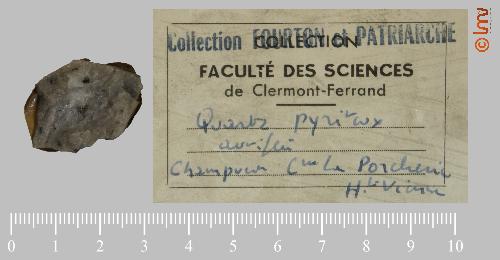 © lmv
Collection FOURTON et PATRIARCHE
COLLECTION
FACULTÉ DES SCIENCES
de Clermont-Ferrand
Quartz pyriteux
aurifère
Champvert Cne La Porcherie
Hte Vienne
0 1 2 3 4 5 6 7 8 9 10